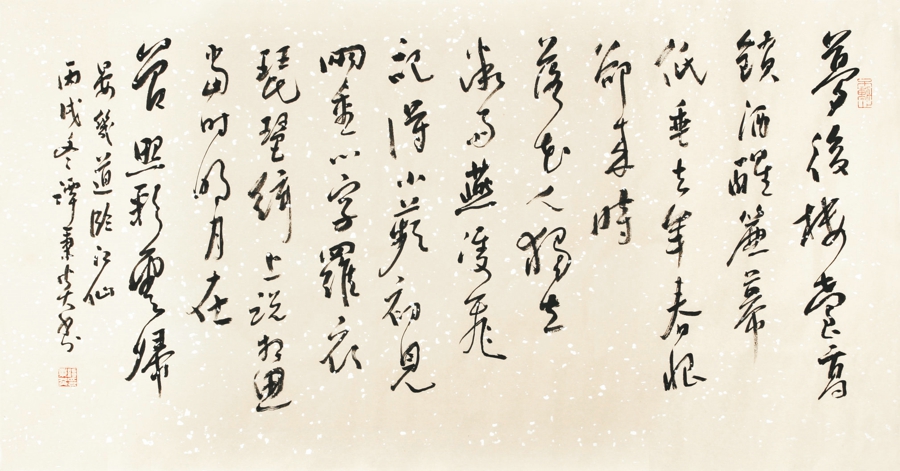 夢後樓臺高
鎖酒醒簾幕
低垂去年春恨
卻來時
落花人獨立
微雨燕雙飛
記得小蘋初見
兩重心字羅衣
琵琶絃上說相思
當時明月在
曾照彩雲歸
晏幾道臨江仙
丙戌冬譚秉炎書